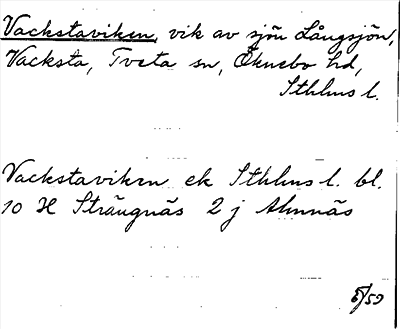 Vackstaviken, vik av sjön Långsjön,
Vacksta, Tveta sn, Öknebo hd,
Sthlms l.
Vackstaviken ek Sthlms l. bl.
10 H Strängnäs 2 j Almnäs
/59